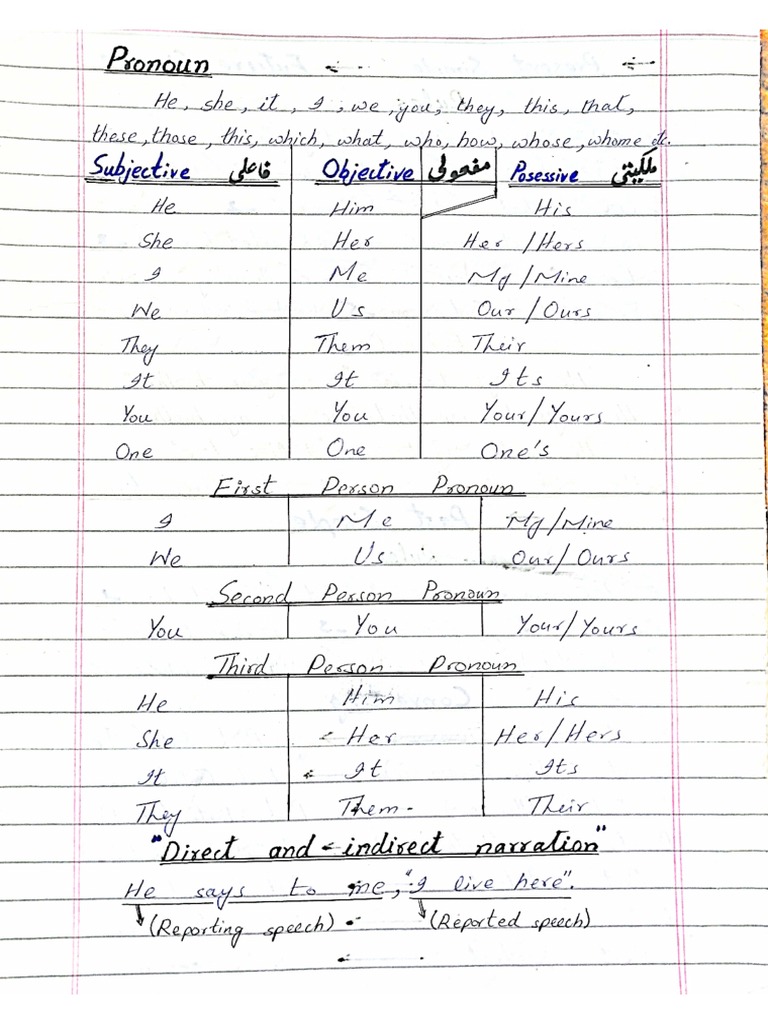 Pronoun
He, she, it, I, we, you, they, this, that,
these, those, this, which, what, who, how, whose, whome etc.
Subjective فاعلی Objective مفعولی Posessive ملکیتی
He Him His
She Her Her/Hers
I Me My/Mine
We Us Our/Ours
They Them Their
It It Its
You You Your/Yours
One One One's
First Person Pronoun
I Me My/Mine
We Us Our/Ours
Second Person Pronoun
You You Your/Yours
Third Person Pronoun
He Him His
She Her Her/Hers
It It Its
They Them Their
"Direct and indirect narration"
He says to me, "I live here".
(Reporting speech) (Reported speech)